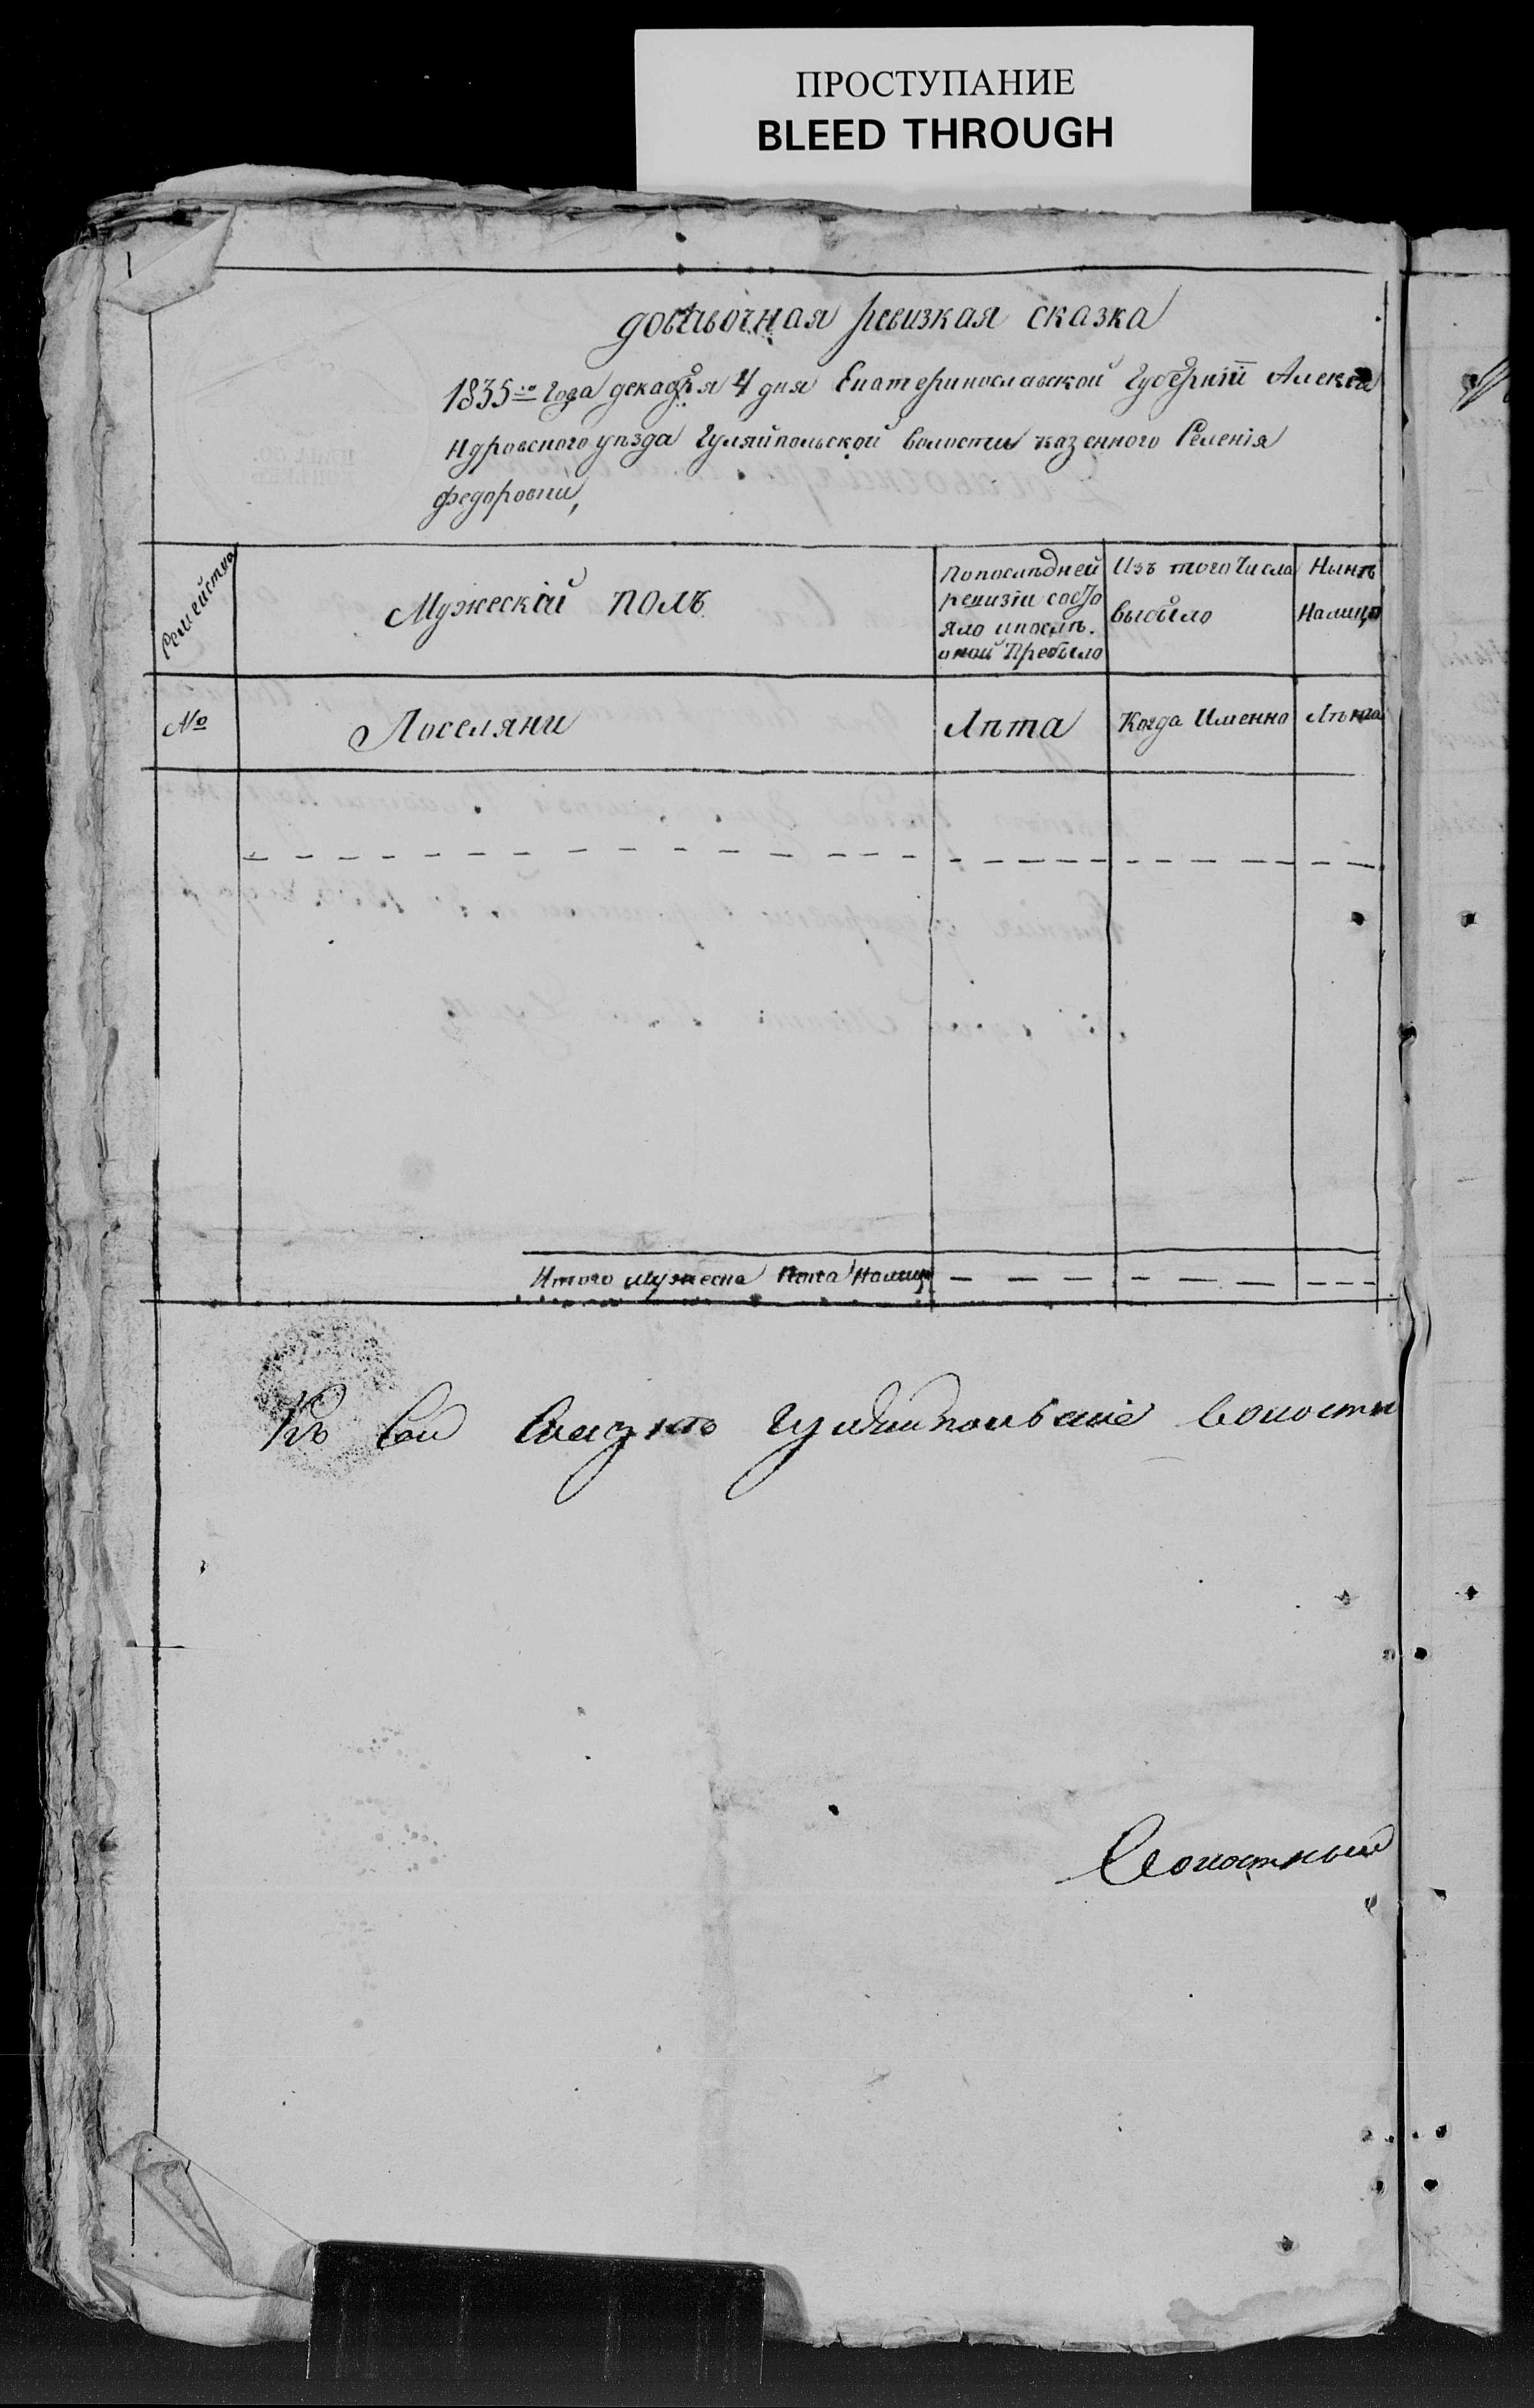 ПРОСТУПАНИЕ
BLEED THROUGH
добавочная ревизкая сказка
1835го Года декабря 4 дня Екатеринославской Губерніи Алекса
ндровскаго уѣзда Гуляйпольской волости казенного Селенія
Федоровки,
Семейства
Мужескій полъ
По послѣдней
ревизіи состо
яло и послѣ.
оной Пребыло
Изъ того Числа
выбыло
Нынѣ
На лицо
№
Поселяни
Лѣта
Когда Именно
Лѣта
Итого мужеска Пола На лицо
Къ сей Сказкѣ Гуляйпольскіе волостн
Волостный